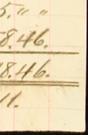 5. " "
8.46.
18.46.
11.